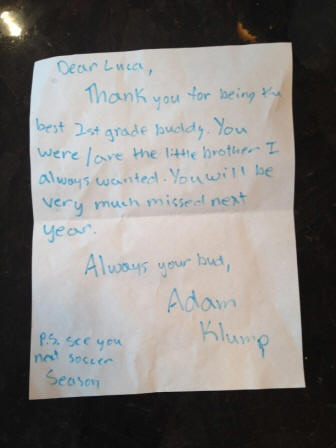 Dear Luca,
Thank you for being the
best 1st grade buddy. You
were/are the little brother I
always wanted. You will be
very much missed next
year.
Always your bud,
Adam
Klump
P.S. see you
next soccer
Season